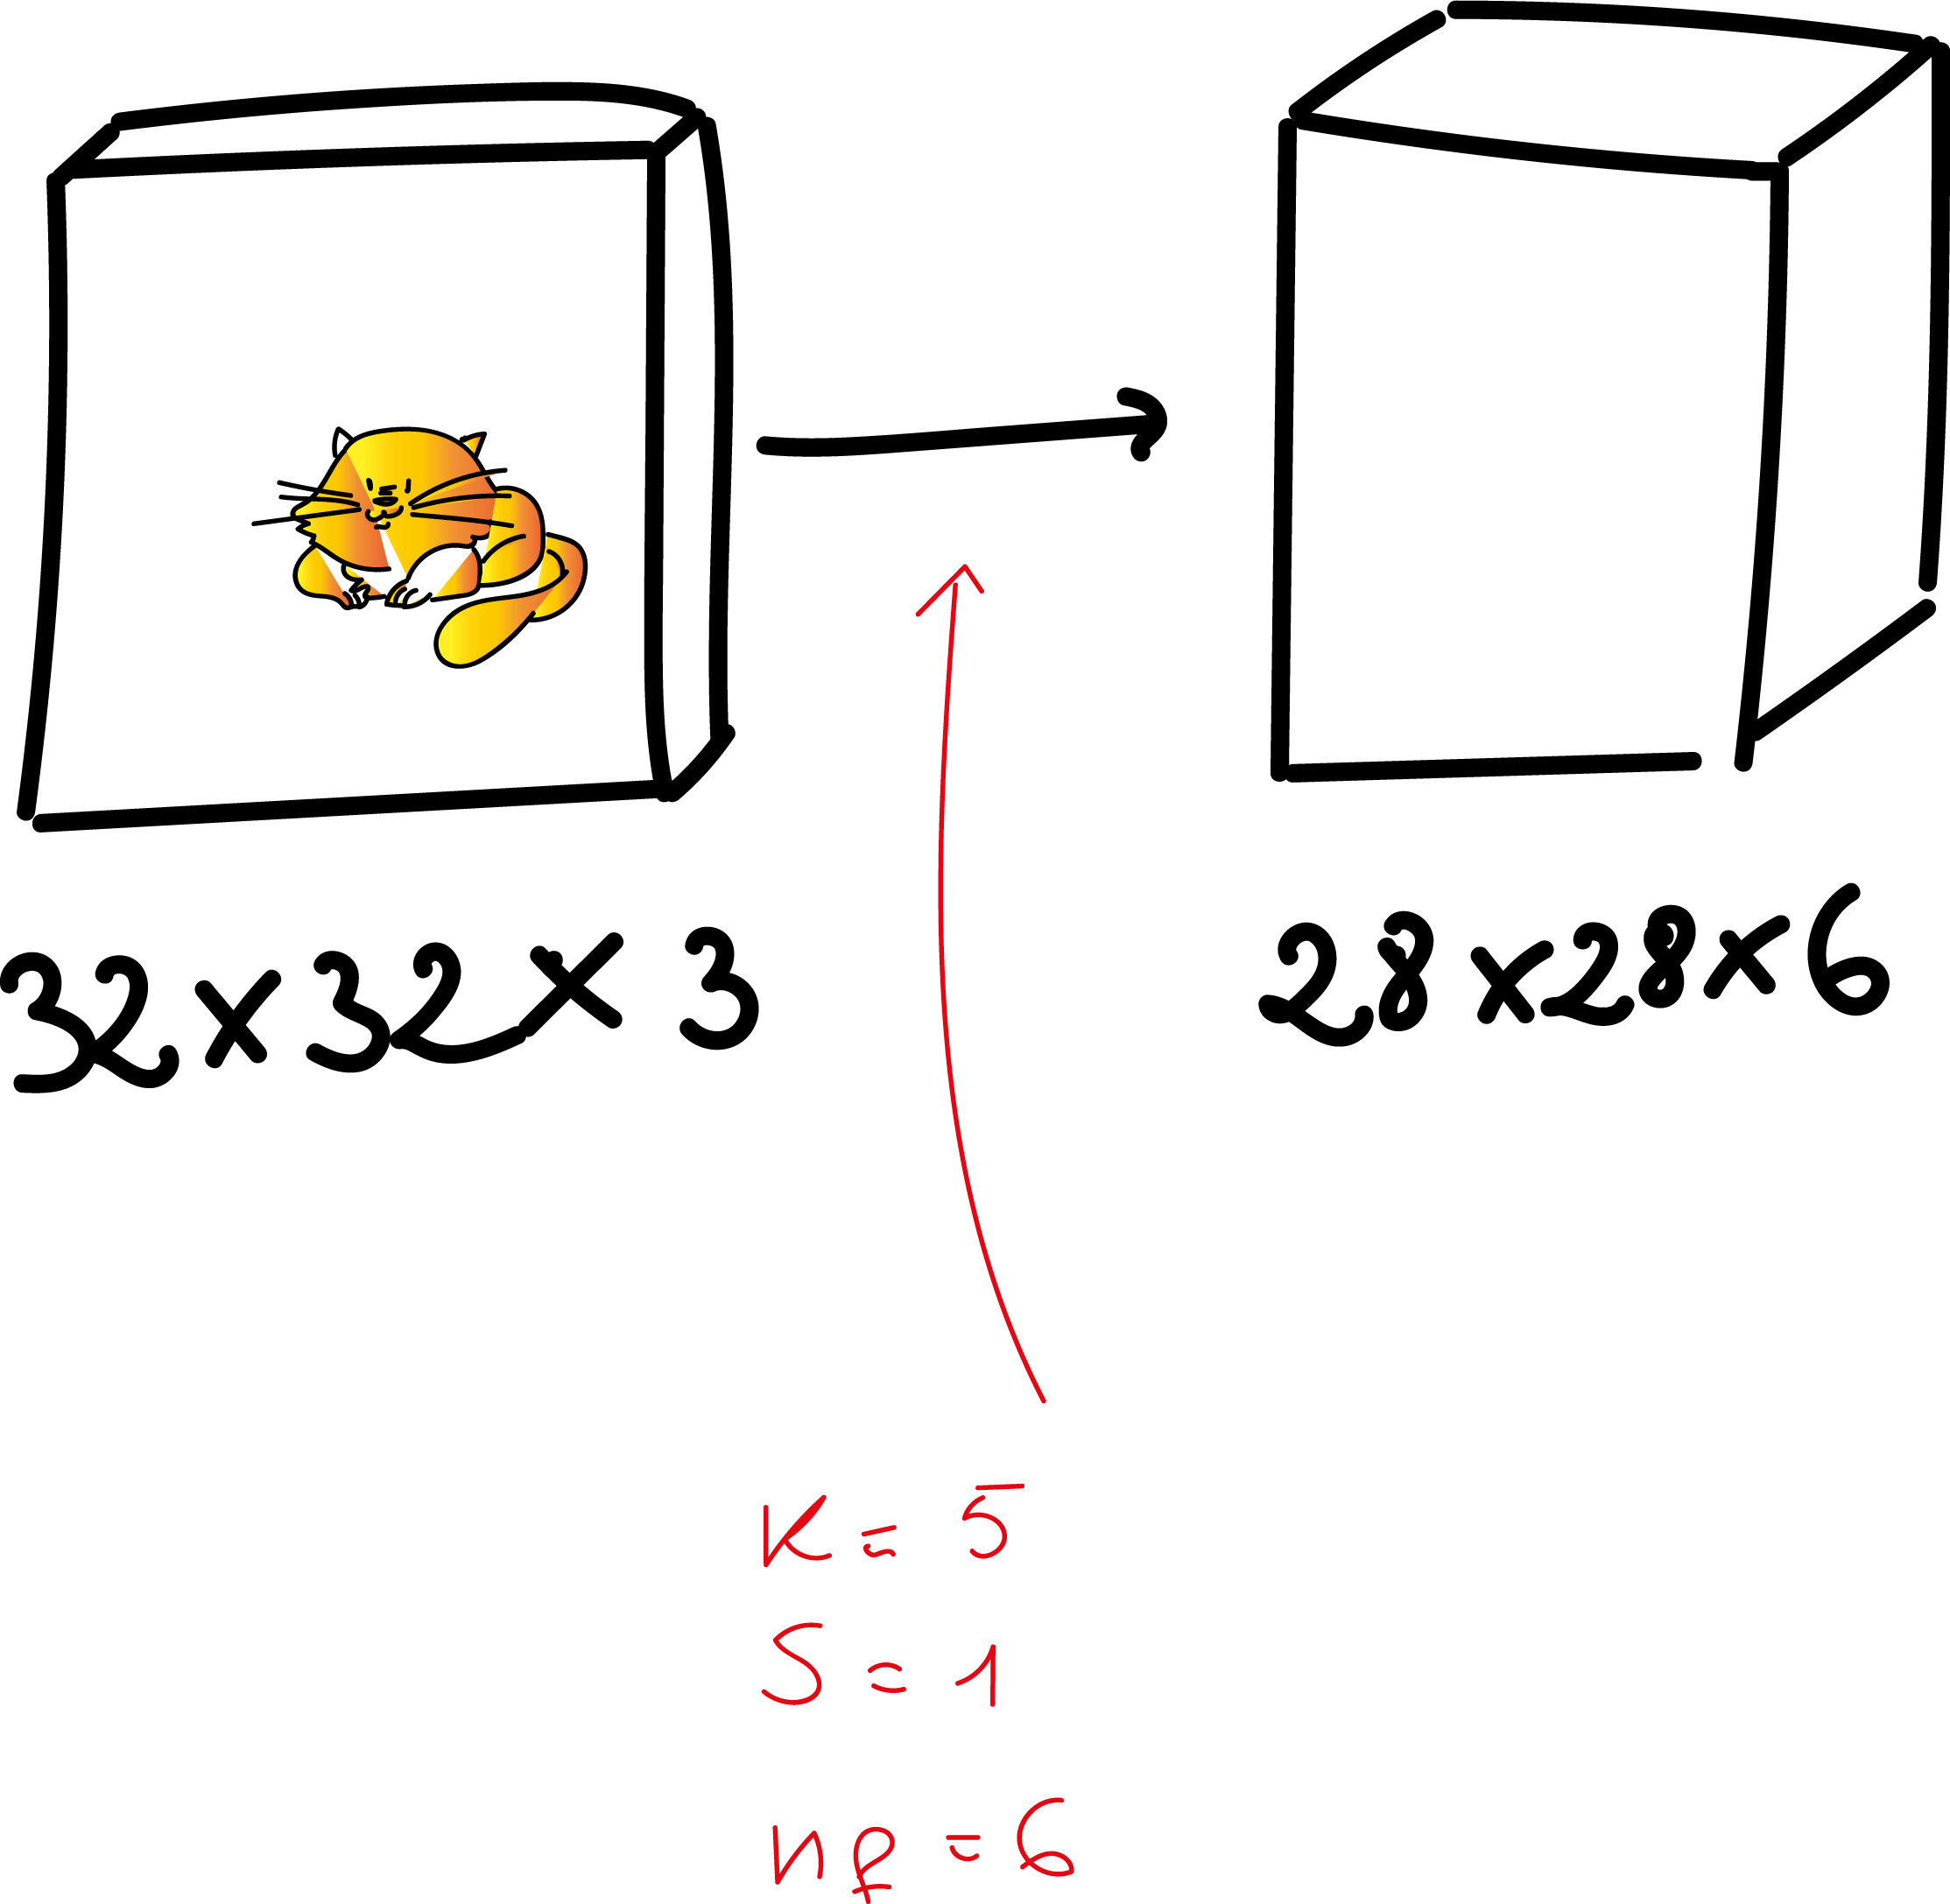 32x32x3
28x28x6
K = 5
S = 1
nf = 6